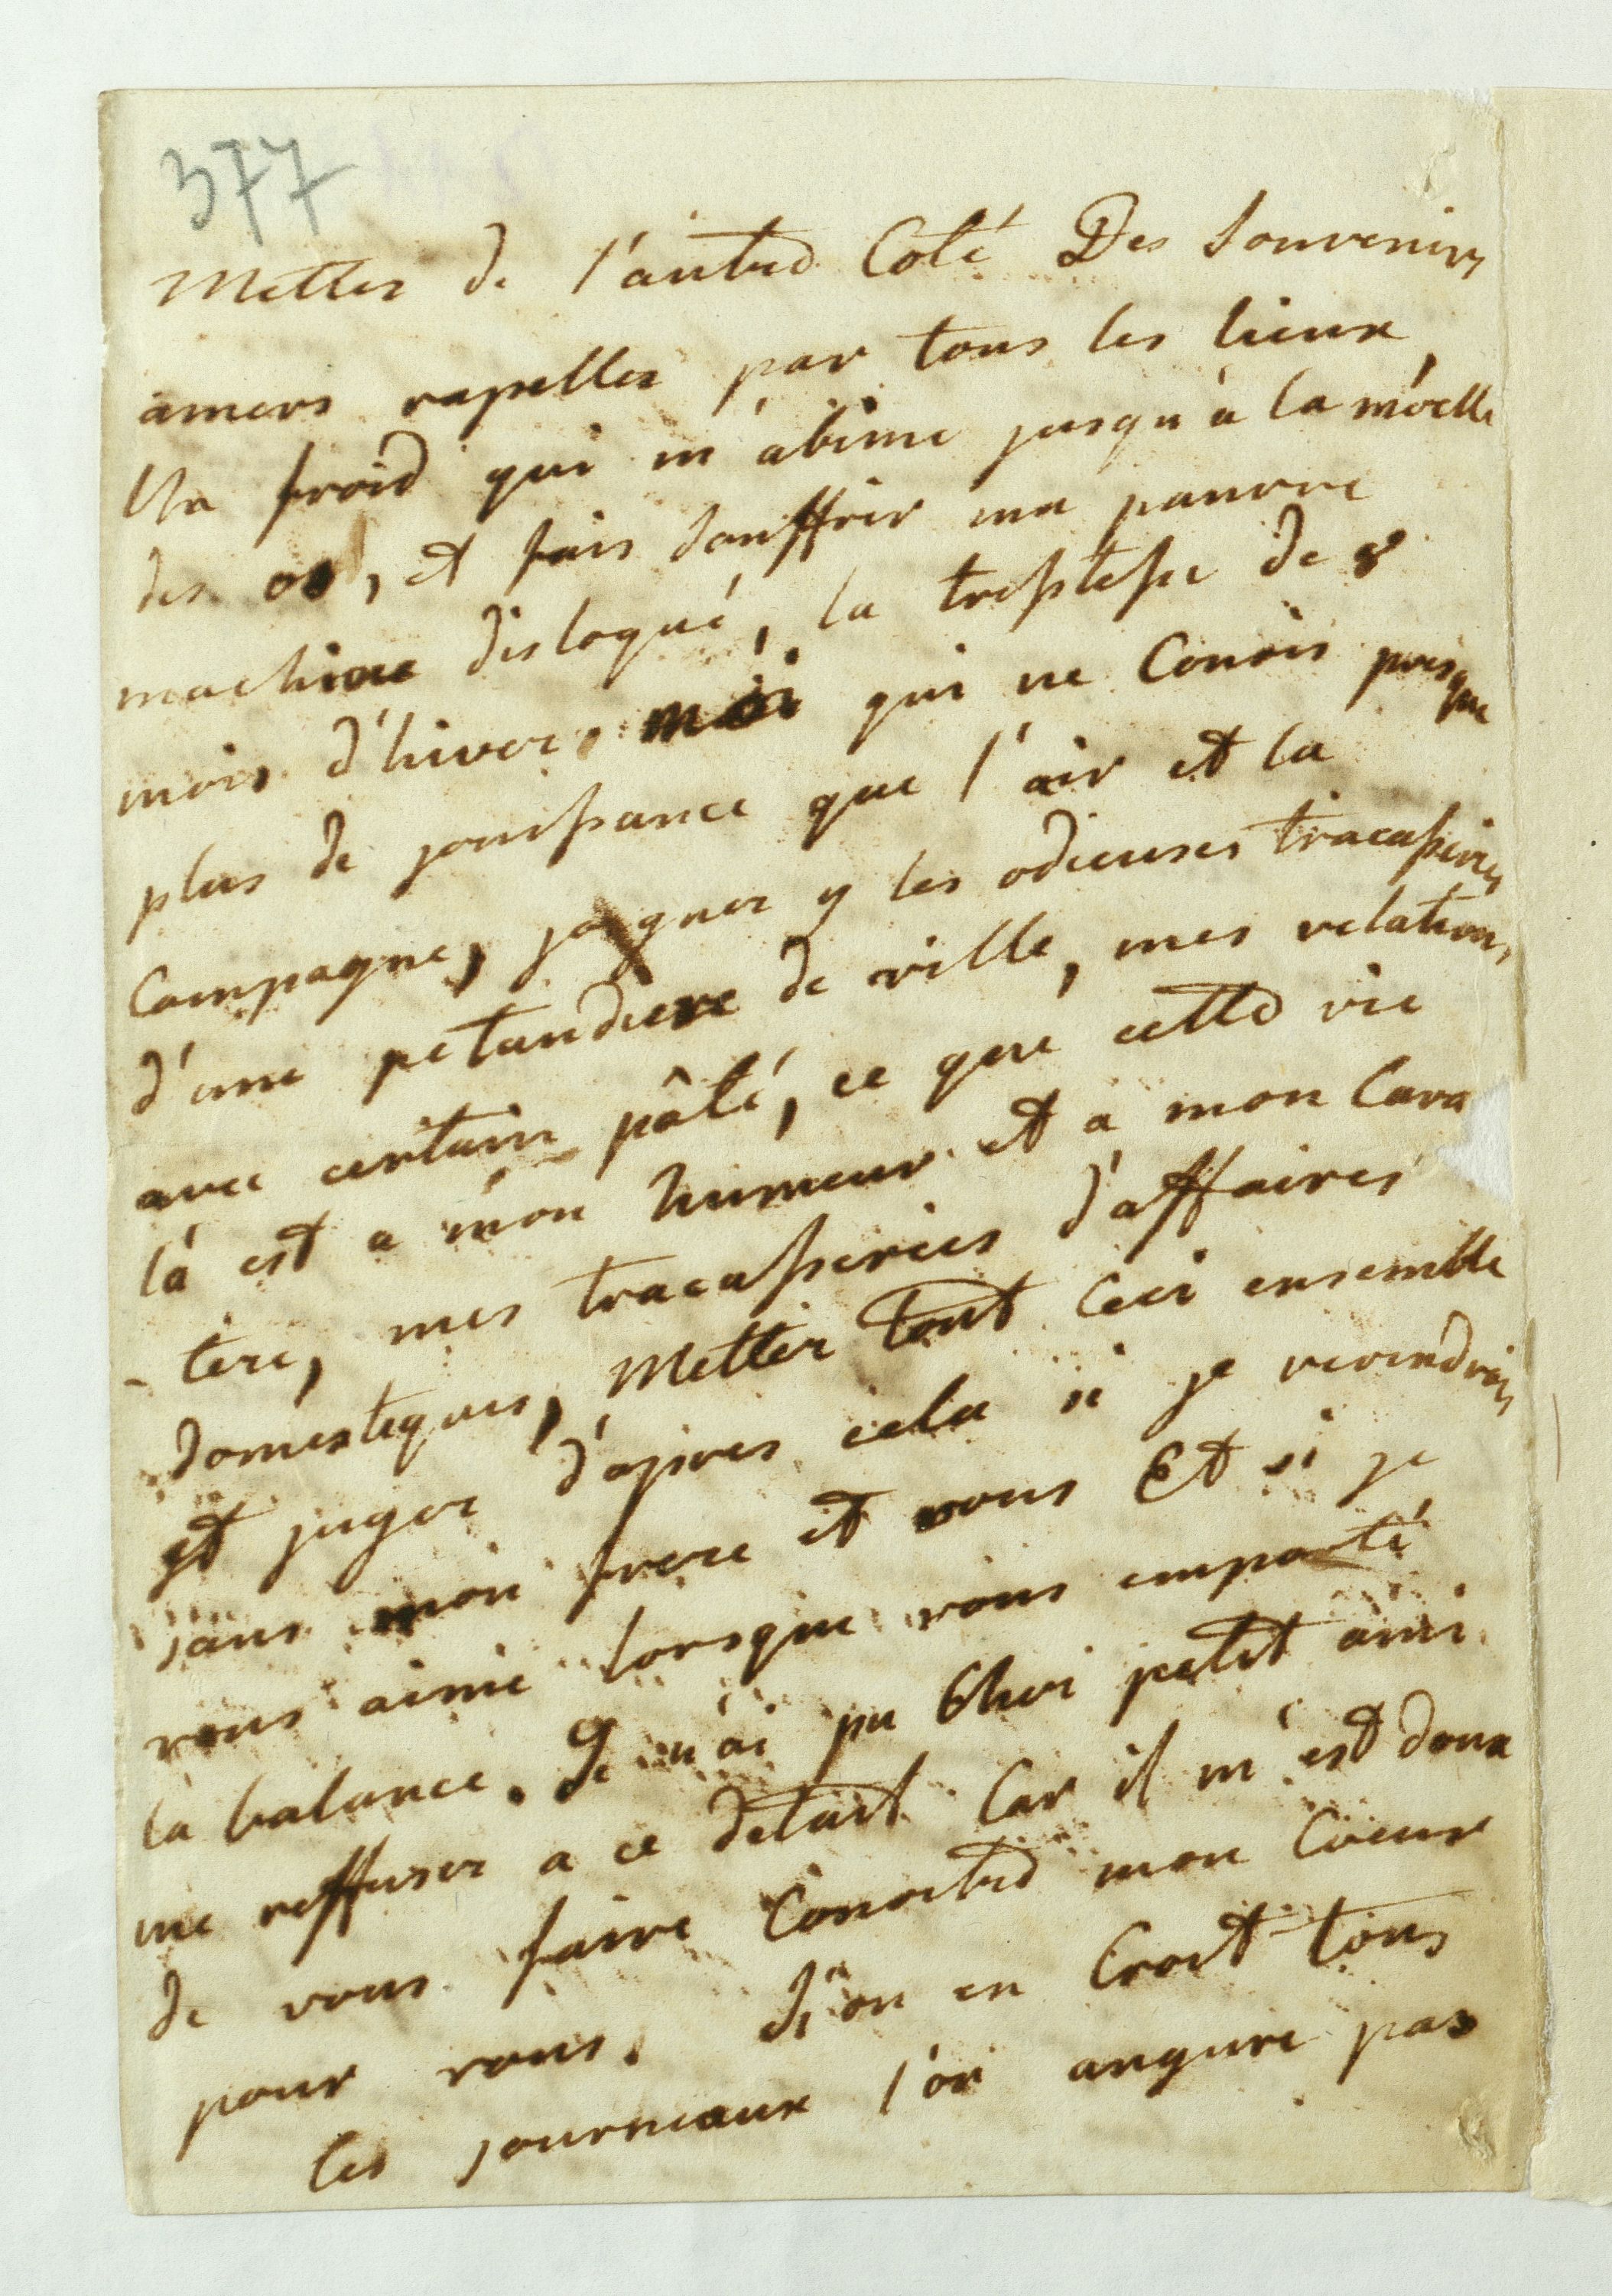 377
Mettes de l'autre Coté Des Souvenirs
amers rapelles par tous les lieux,
Un froid qui m'abime jusqu'à la möelle
des os, et fais Souffrir ma pauvre
machine disloqué, la tristesse de 8
mois d'hiver, moi qui ne Conois presque
plus de jouissance que l'air et la
Campagne, jognes y les odieuses tracasseries
d'une petaudiere de ville, mes relations
avec certain pâté, ce que cette vie
là est a mon humeur et a mon Carac
-tere, mes tracasseries d'affaires
domestiques, Mettes tout Ceci ensemble
et juges d'apres cela si je reviendrois
sans mon frere et vous Et si je
vous aime lorsque vous emporté
la balance. Je n'ai pu Cheri petit ami
me reffuser a ce detail Car il m'est doux
de vous faire Conoitre mon Coeur
pour vous. Si on en Croit tous
les journeaux l'on augure pas